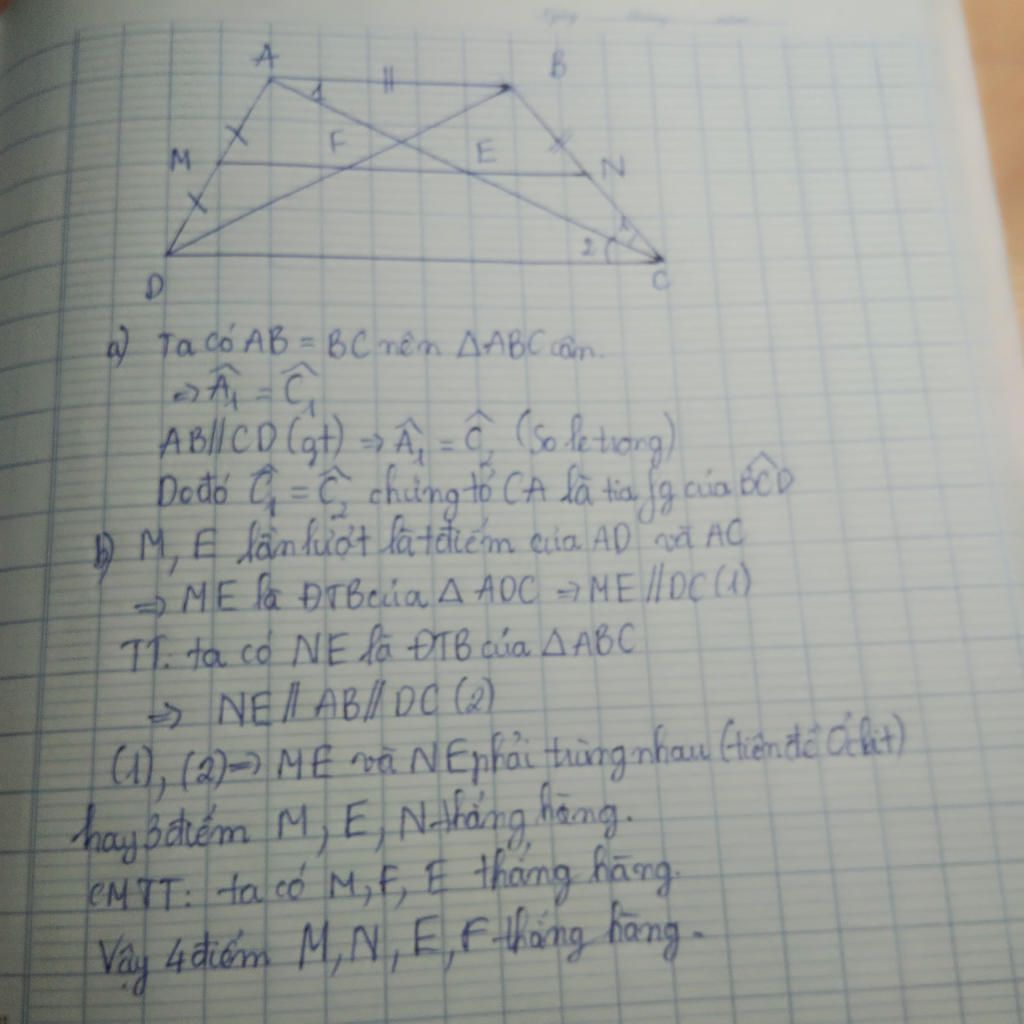 A
B
1
M
F
E
N
2
1
D
C
a) Ta có AB = BC nên ΔABC cân.
⇒ Â₁ = Ĉ₁
AB // CD (gt) ⇒ Â₁ = Ĉ₂ (So le trong)
Do đó Ĉ₁ = Ĉ₂ chứng tỏ CA là tia fg của BĈD
b) M, E lần lượt là tđiểm của AD và AC
⇒ ME là ĐTB của Δ ADC ⇒ ME // DC (1)
TT: ta có NE là ĐTB của ΔABC
⇒ NE // AB // DC (2)
(1), (2) ⇒ ME và NE phải trùng nhau (tiên đề Ơclit)
hay 3 điểm M, E, N thẳng hàng.
CMTT: ta có M, F, E thẳng hàng.
Vậy 4 điểm M, N, E, F thẳng hàng.